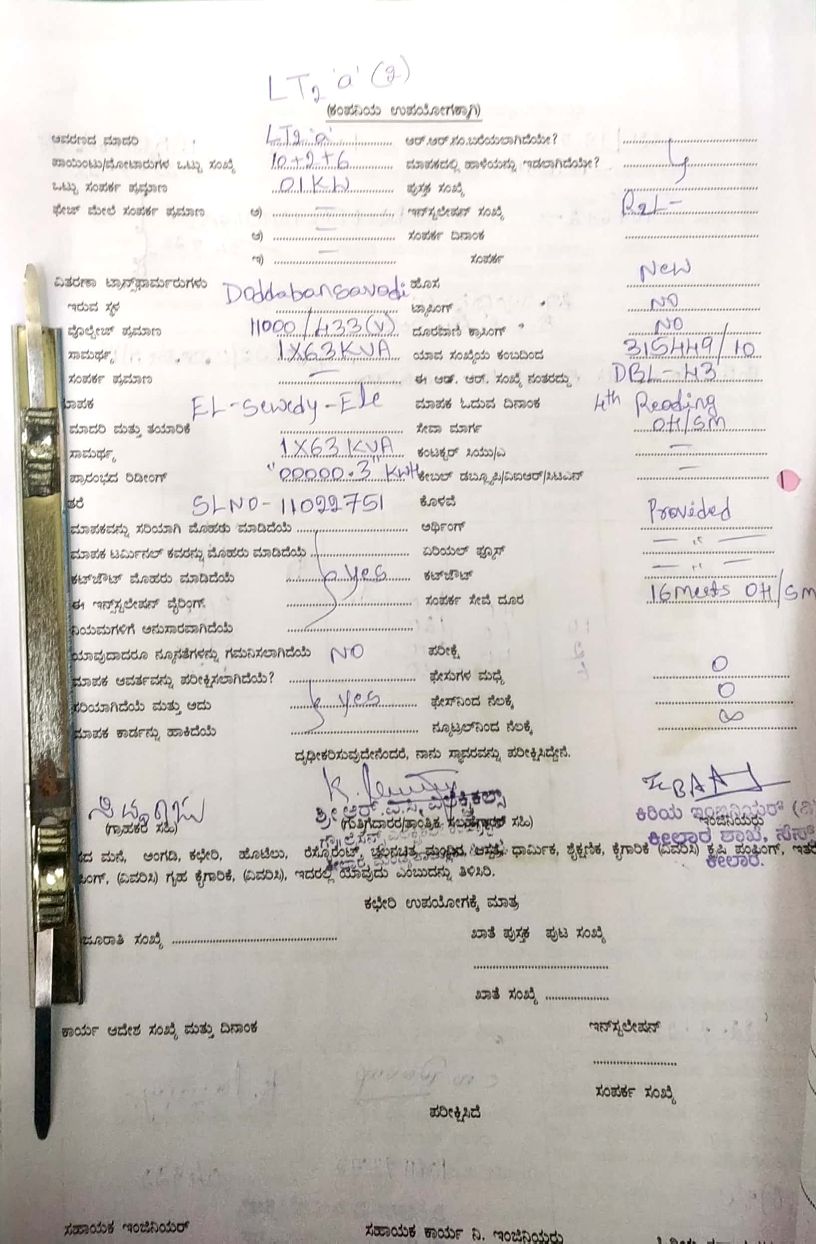 LT2 'a' (2)
(ಕಂಪನಿಯ ಉಪಯೋಗಕ್ಕಾಗಿ)
ಆವರಣದ ಮಾದರಿ LT2 'a' ಆರ್.ಆರ್.ನಂ.ಬರೆಯಲಾಗಿದೆಯೇ?
ಪಾಯಿಂಟು/ಮೋಟಾರುಗಳ ಒಟ್ಟು ಸಂಖ್ಯೆ 10+2+6 ಮಾಪಕದಲ್ಲಿ ಹಾಳೆಯನ್ನು ಇಡಲಾಗಿದೆಯೇ?
ಒಟ್ಟು ಸಂಪರ್ಕ ಪ್ರಮಾಣ 01KW ಪುಸ್ತಕ ಸಂಖ್ಯೆ
ಫೇಜ್ ಮೇಲೆ ಸಂಪರ್ಕ ಪ್ರಮಾಣ ಅ) — ಇನ್‌ಸ್ಟಲೇಷನ್ ಸಂಖ್ಯೆ
ಆ) — ಸಂಪರ್ಕ ದಿನಾಂಕ
ಇ) — ಸಂಪರ್ಕ
ವಿತರಣಾ ಟ್ರಾನ್ಸ್‌ಫಾರ್ಮರುಗಳು ಹೊಸ New
ಇರುವ ಸ್ಥಳ Doddabansavadi ಟ್ರಾಸಿಂಗ್ NO
ವೊಲ್ಟೇಜ್ ಪ್ರಮಾಣ 11000/433(V) ದೂರವಾಣಿ ಕ್ರಾಸಿಂಗ್ NO
ಸಾಮರ್ಥ್ಯ 1X63KVA ಯಾವ ಸಂಖ್ಯೆಯ ಕಂಬದಿಂದ 315449/10
ಸಂಪರ್ಕ ಪ್ರಮಾಣ — ಈ ಆರ್. ಆರ್. ಸಂಖ್ಯೆ ನಂತರದ್ದು DBL-43
ಮಾಪಕ EL-Sewedy-Ele ಮಾಪಕ ಓದುವ ದಿನಾಂಕ 4th Reading
ಮಾದರಿ ಮತ್ತು ತಯಾರಿಕೆ ಸೇವಾ ಮಾರ್ಗ OH/SM
ಸಾಮರ್ಥ್ಯ 1X63 KVA ಕಂಟಕ್ಟರ್ ಸಿಯು/ಎ —
ಪ್ರಾರಂಭದ ರಿಡೀಂಗ್ "00000.3" KWH ಕೇಬಲ್ ಡಬ್ಲ್ಯೂಪಿ/ವಿಐಆರ್/ಸಿಟಿಎನ್ —
ತರೆ SLNO-11022751 ಕೊಳವೆ
ಮಾಪಕವನ್ನು ಸರಿಯಾಗಿ ಮೊಹರು ಮಾಡಿದೆಯೆ ಅರ್ಥಿಂಗ್ Provided
ಮಾಪಕ ಟರ್ಮಿನಲ್ ಕವರನ್ನು ಮೊಹರು ಮಾಡಿದೆಯೆ ಏರಿಯಲ್ ಫ್ಯೂಸ್ — " —
ಕಟ್‌ಔಟ್ ಮೊಹರು ಮಾಡಿದೆಯೆ yes ಕಟ್‌ಔಟ್ — " —
ಈ ಇನ್‌ಸ್ಟಲೇಷನ್ ವೈರಿಂಗ್ ಸಂಪರ್ಕ ಸೇವೆ ದೂರ 16 meets OH/SM
ನಿಯಮಗಳಿಗೆ ಅನುಸಾರವಾಗಿದೆಯೆ
ಯಾವುದಾದರೂ ನ್ಯೂನತೆಗಳನ್ನು ಗಮನಿಸಲಾಗಿದೆಯೆ NO ಪರೀಕ್ಷೆ
ಮಾಪಕ ಆವರ್ತವನ್ನು ಪರೀಕ್ಷಿಸಲಾಗಿದೆಯೆ? ಫೇಸುಗಳ ಮಧ್ಯೆ 0
ಸರಿಯಾಗಿದೆಯೆ ಮತ್ತು ಅದು yes ಫೇಸ್‌ನಿಂದ ನೆಲಕ್ಕೆ 0
ಮಾಪಕ ಕಾರ್ಡನ್ನು ಹಾಕಿದೆಯೆ ನ್ಯೂಟ್ರಲ್‌ನಿಂದ ನೆಲಕ್ಕೆ ∞
ದೃಢೀಕರಿಸುವುದೇನೆಂದರೆ, ನಾನು ಸ್ಥಾವರವನ್ನು ಪರೀಕ್ಷಿಸಿದ್ದೇನೆ.
ಶ್ರೀ ಆರ್.ಎ.ಸಿ. ಎಲೆಕ್ಟ್ರಿಕಲ್ಸ್ ಕಿರಿಯ ಇಂಜಿನಿಯರ್
(ಗ್ರಾಹಕರ ಸಹಿ) (ಗುತ್ತಿಗೆದಾರರ/ತಾಂತ್ರಿಕ ಸಲಹೆಗಾರರ ಸಹಿ) ಇಂಜಿನಿಯರು
ಕೀಲಾರ ಶಾಖೆ,
ಕೀಲಾರ.
ಮನೆ, ಅಂಗಡಿ, ಕಛೇರಿ, ಹೊಟೆಲು, ರೆಸ್ಟೋರೆಂಟ್, ಚಲನಚಿತ್ರ ಮಂದಿರ, ಆಸ್ಪತ್ರೆ, ಧಾರ್ಮಿಕ, ಶೈಕ್ಷಣಿಕ, ಕೈಗಾರಿಕೆ (ವಿವರಿಸಿ) ಕೃಷಿ ಪಂಪಿಂಗ್, ಇತರೆ
(ವಿವರಿಸಿ) ಗೃಹ ಕೈಗಾರಿಕೆ, (ವಿವರಿಸಿ), ಇದರಲ್ಲಿ ಯಾವುದು ಎಂಬುದನ್ನು ತಿಳಿಸಿರಿ.
ಕಛೇರಿ ಉಪಯೋಗಕ್ಕೆ ಮಾತ್ರ
ಜೂರಾತಿ ಸಂಖ್ಯೆ ಖಾತೆ ಪುಸ್ತಕ ಪುಟ ಸಂಖ್ಯೆ
ಖಾತೆ ಸಂಖ್ಯೆ
ಕಾರ್ಯ ಆದೇಶ ಸಂಖ್ಯೆ ಮತ್ತು ದಿನಾಂಕ ಇನ್‌ಸ್ಟಲೇಷನ್
ಸಂಪರ್ಕ ಸಂಖ್ಯೆ
ಪರೀಕ್ಷಿಸಿದೆ
ಸಹಾಯಕ ಇಂಜಿನಿಯರ್ ಸಹಾಯಕ ಕಾರ್ಯ ನಿ. ಇಂಜಿನಿಯರು